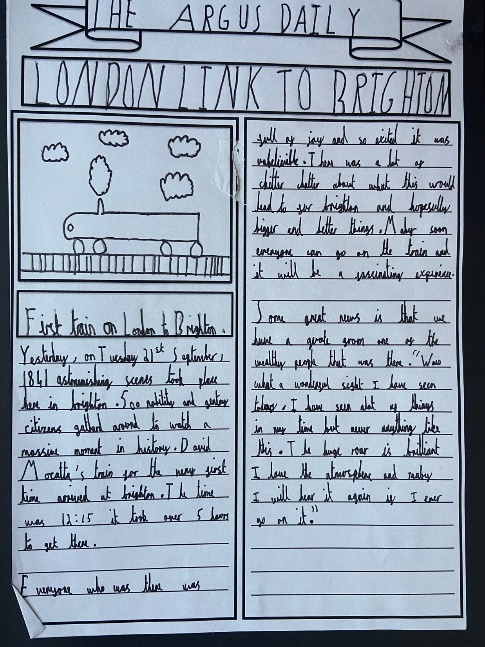 THE ARGUS DAILY
LONDON LINK TO BRIGHTON
First train on London to Brighton.
Yesterday, on Tuesday 21st September,
1841 astonishing scenes took place
here in brighton. 500 nobility and gentry
citizens gatherd around to watch a
massive moment in history. David
Mocatta's train for the very first
time arrived at brighton. The time
was 12:15 it took over 5 hours
to get there.
Everyone who was there was
full of joy and so exited it was
unbelivible. There was a lot of
chitter chatter about what this would
lead to for brighton and hopefully
bigger and better things. Maby soon
everyone can go on the train and
it will be a fascinating experience.
Some great news is that we
have a quote from one of the
wealthy people that was there. "Wow
what a wonderful sight I have seen
today. I have seen alot of things
in my time but never anything like
this. The huge roar is brilliant
I love the atmosphere and maby
I will hear it again if I ever
go on it."